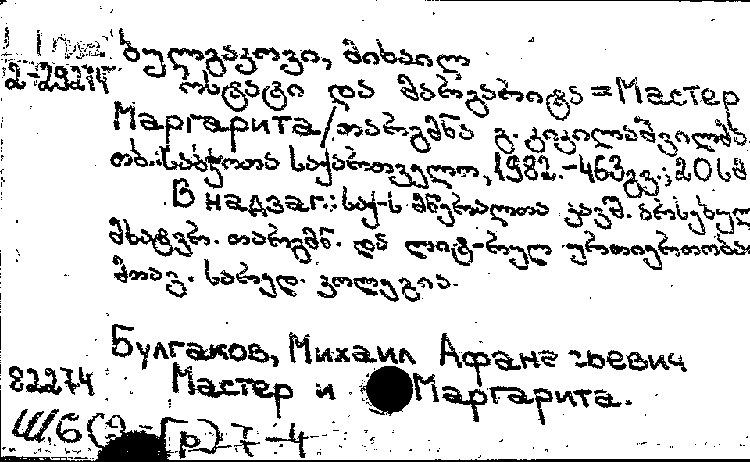 ბულგაკოვი, მიხაილ
2-29274 ოსტატი და მარგარიტა = Мастер
Маргарита / თარგმნა გ. კიკილაშვილმა.
თბ.: საბჭოთა საქართველო, 1982. - 463 გვ.; 20 სმ
В надзаг.: საქ-ს მწერალთა კავშ. არსებულ
მხატვრ. თარგმნ. და ლიტ-რულ ურთიერთობათა
მთავ. სარედ. კოლეგია.
Булгаков, Михаил Афанасьевич
82274 Мастер и Маргарита.